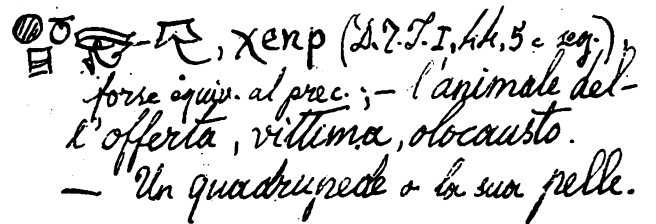 , χenp (D.T.I., 44, 5 e seg.),
forse equiv. al prec.; — l'animale del-
l'offerta, vittima, olocausto.
— Un quadrupede o la sua pelle.